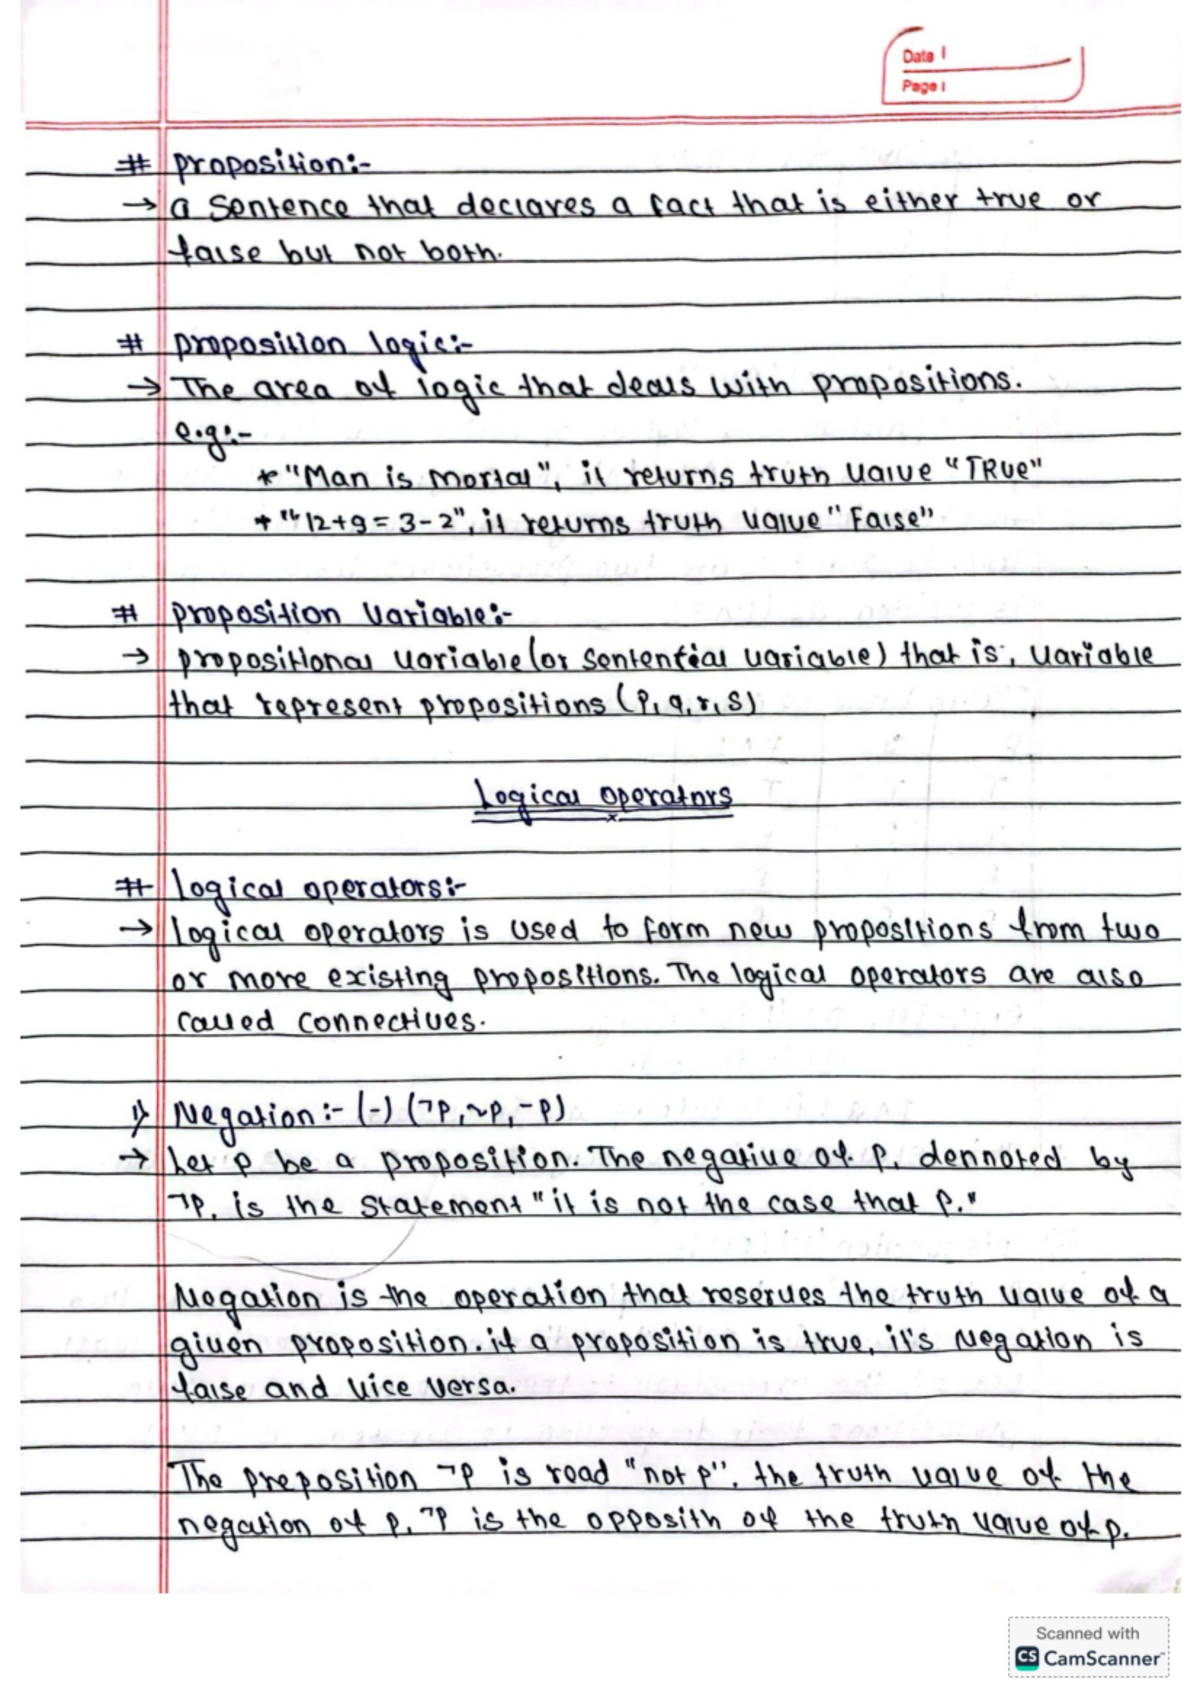 Date :
Page :
# proposition:-
→ a sentence that declares a fact that is either true or
false but not both.
# proposition logic:-
→ The area of logic that deals with propositions.
e.g:-
* "Man is mortal", it returns truth value "TRUe"
* "12+9=3-2", it returns truth value "False"
# proposition variable:-
→ propositional variable (or sentential variable) that is, variable
that represent propositions (p,q,r,s)
Logical operators
# logical operators:-
→ logical operators is used to form new propositions from two
or more existing propositions. The logical operators are also
called connectives.
1) Negation:- (-) (¬p, ~p, -p)
→ Let p be a proposition. The negative of p, dennoted by
¬p, is the statement "it is not the case that p."
Negation is the operation that reserves the truth value of a
given proposition. if a proposition is true, it's Negation is
false and vice versa.
The preposition ¬p is read "not p". the truth value of the
negation of p, ¬p is the opposith of the truth value of p.
Scanned with
CS CamScanner